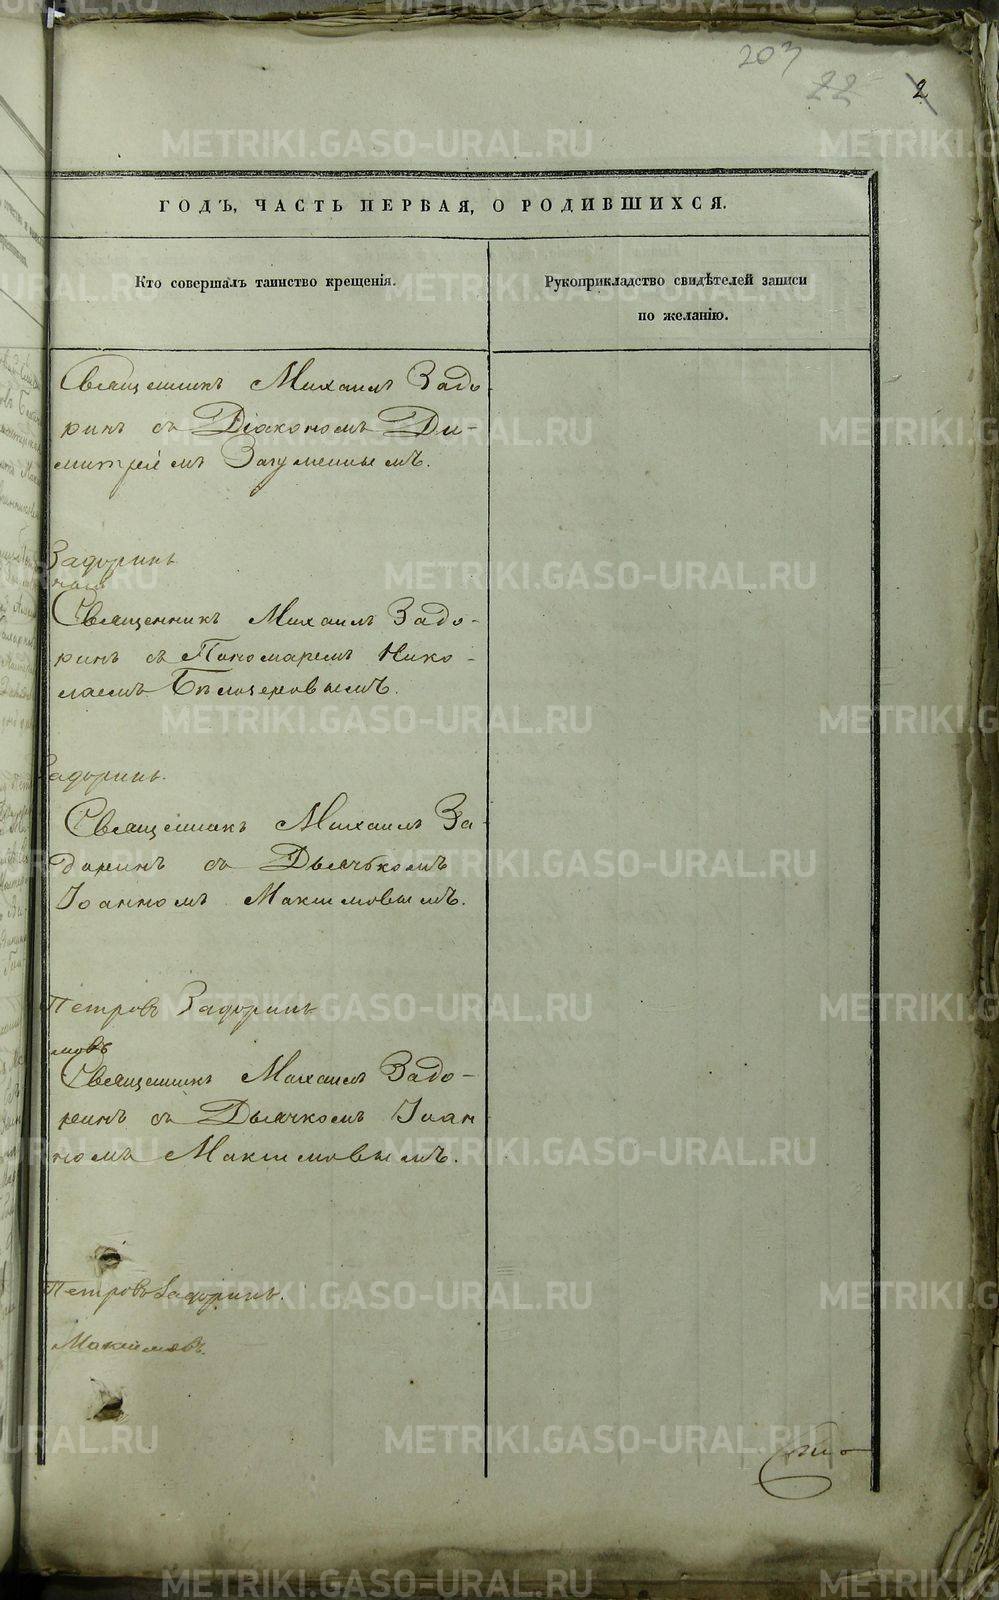 203
22 2
ГОДЪ, ЧАСТЬ ПЕРВАЯ, О РОДИВШИХСЯ.
Кто совершалъ таинство крещенія.
Рукоприкладство свидѣтелей записи
по желанію.
Священникъ Михаилъ Задо-
ринъ съ Діакономъ Ди-
митріемъ Загуменнымъ.
Задоринъ
Священникъ Михаилъ Задо-
ринъ съ Пономаремъ Нико-
лаемъ Бѣлозеровымъ.
Задоринъ.
Священникъ Михаилъ За-
доринъ съ Дьячькомъ
Іоанномъ Максимовымъ.
Петровъ Задоринъ
мовъ
Священникъ Михаилъ Задо-
ринъ съ Дьячкомъ Іоан
номъ Максимовымъ.
Петровъ Задоринъ.
Максимовъ.
METRIKI.GASO-URAL.RU